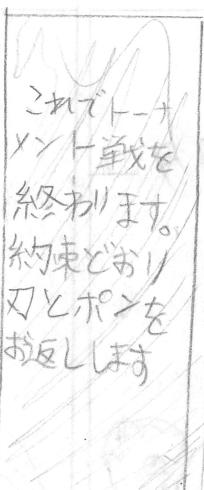 これでトーナ
メント戦を
終わります。
約束どおり
刃とポンを
お返しします